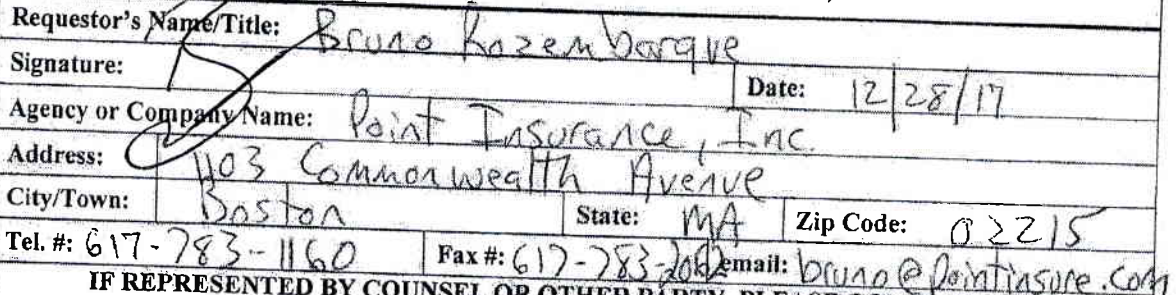 Requestor's Name/Title: Bruno Rozembarque
Signature:
Date: 12/28/17
Agency or Company Name: Point Insurance, Inc.
Address: 1103 Commonwealth Avenue
City/Town: Boston State: MA Zip Code: 02215
Tel. #: 617-783-1160 Fax #: 617-783-2062 email: bruno@pointinsure.com
IF REPRESENTED BY COUNSEL OR OTHER PARTY, PLEASE